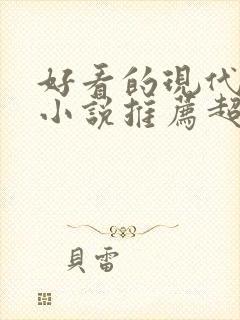 好看的現代
小說推薦超
貝雷